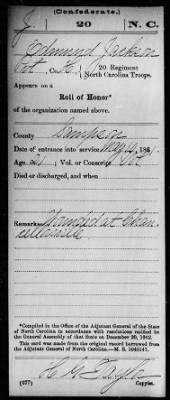 (Confederate.)
J 20 N. C.
Edmund Jackson
Pvt, Co. 20 Regiment
North Carolina Troops.
Appears on a
Roll of Honor*
of the organization named above.
County Sampson
Date of entrance into service May 4, 1861.
Age 21 Vol. or Conscript Vol
Died or discharged, and when
Remarks: Wounded at Chan-
cellorsville
*Compiled by the Office of the Adjutant General of the State
of North Carolina in accordance with resolutions ratified by
the General Assembly of that State on December 20, 1862.
This card was made from the original record borrowed from
the Adjutant General of North Carolina.—M. S. 1043147.
(677) Copyist.